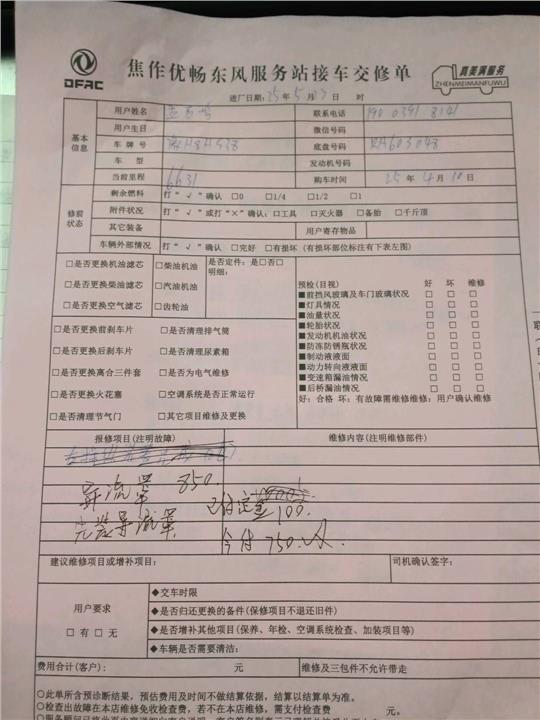 DFAC
焦作优畅东风服务站接车交修单
真美满服务
ZHENMEIMANFUWU
进厂日期：25年5月23日 时
基本信息
用户姓名
联系电话 190 0391 8141
用户生日
微信号码
车牌号
底盘号码 RH603048
车 型
发动机号码
当前里程 6631
购车时间 25年4月10日
修前状态
剩余燃料 打“√”确认 □0 □1/4 □1/2 □1
附件状况 打“√”或打“×”确认：□工具 □灭火器 □备胎 □千斤顶
其它装备
用户寄存物品
车辆外部情况 打“√”确认 □完好 □有损坏（有损坏部位标注有下表左图）
□是否更换机油滤芯 □柴油机油 是否定件：是□否□
□是否更换柴油滤芯 □汽油机油 明细：
□是否更换空气滤芯 □齿轮油
□是否更换前刹车片 □是否清理排气筒
□是否更换后刹车片 □是否清理尿素箱
□是否更换离合三件套 □是否为电气维修
□是否更换火花塞 □空调系统是否正常运行
□是否清理节气门 □其它项目维修及更换
预检（目视） 好 坏 维修
■前挡风玻璃及车门玻璃状况 □ □ □
■灯具情况 □ □ □
■油量状况 □ □ □
■轮胎状况 □ □ □
■发动机机油状况 □ □ □
■防冻防锈瓶状况 □ □ □
■制动液液面 □ □ □
■动力转向液液面 □ □ □
■变速箱漏油情况 □ □ □
■后桥漏油情况 □ □ □
好：合格 坏：有故障需维修维修：用户确认维修
报修项目（注明故障）
维修内容（注明维修部件）
导流罩 850.
已付定金100.
安装导流罩
今付750.
建议维修项目或增补项目：
司机确认签字：
用户要求
□有□无
◆交车时限
◆是否归还更换的备件（保修项目不退还旧件）
◆是否增补其他项目（保养、年检、空调系统检查、加装项目等）
◆车辆是否需要清洁：
费用合计（客户）： 元
维修及三包件不允许带走
○此单所含预诊断结果，预估费用及时间不做结算依据，结算以结算单为准。
○检查出故障在本店维修免收检查费，若不在本店维修，需支付检查费 元。